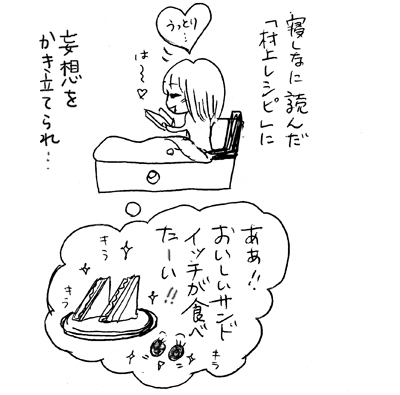 寝しなに読んだ
「村上レシピ」に
妄想を
かき立てられ…
うっとり…
は〜♡
ああ!!
おいしいサンド
イッチが食べ
たーい!!
キラ
キラ
キラ